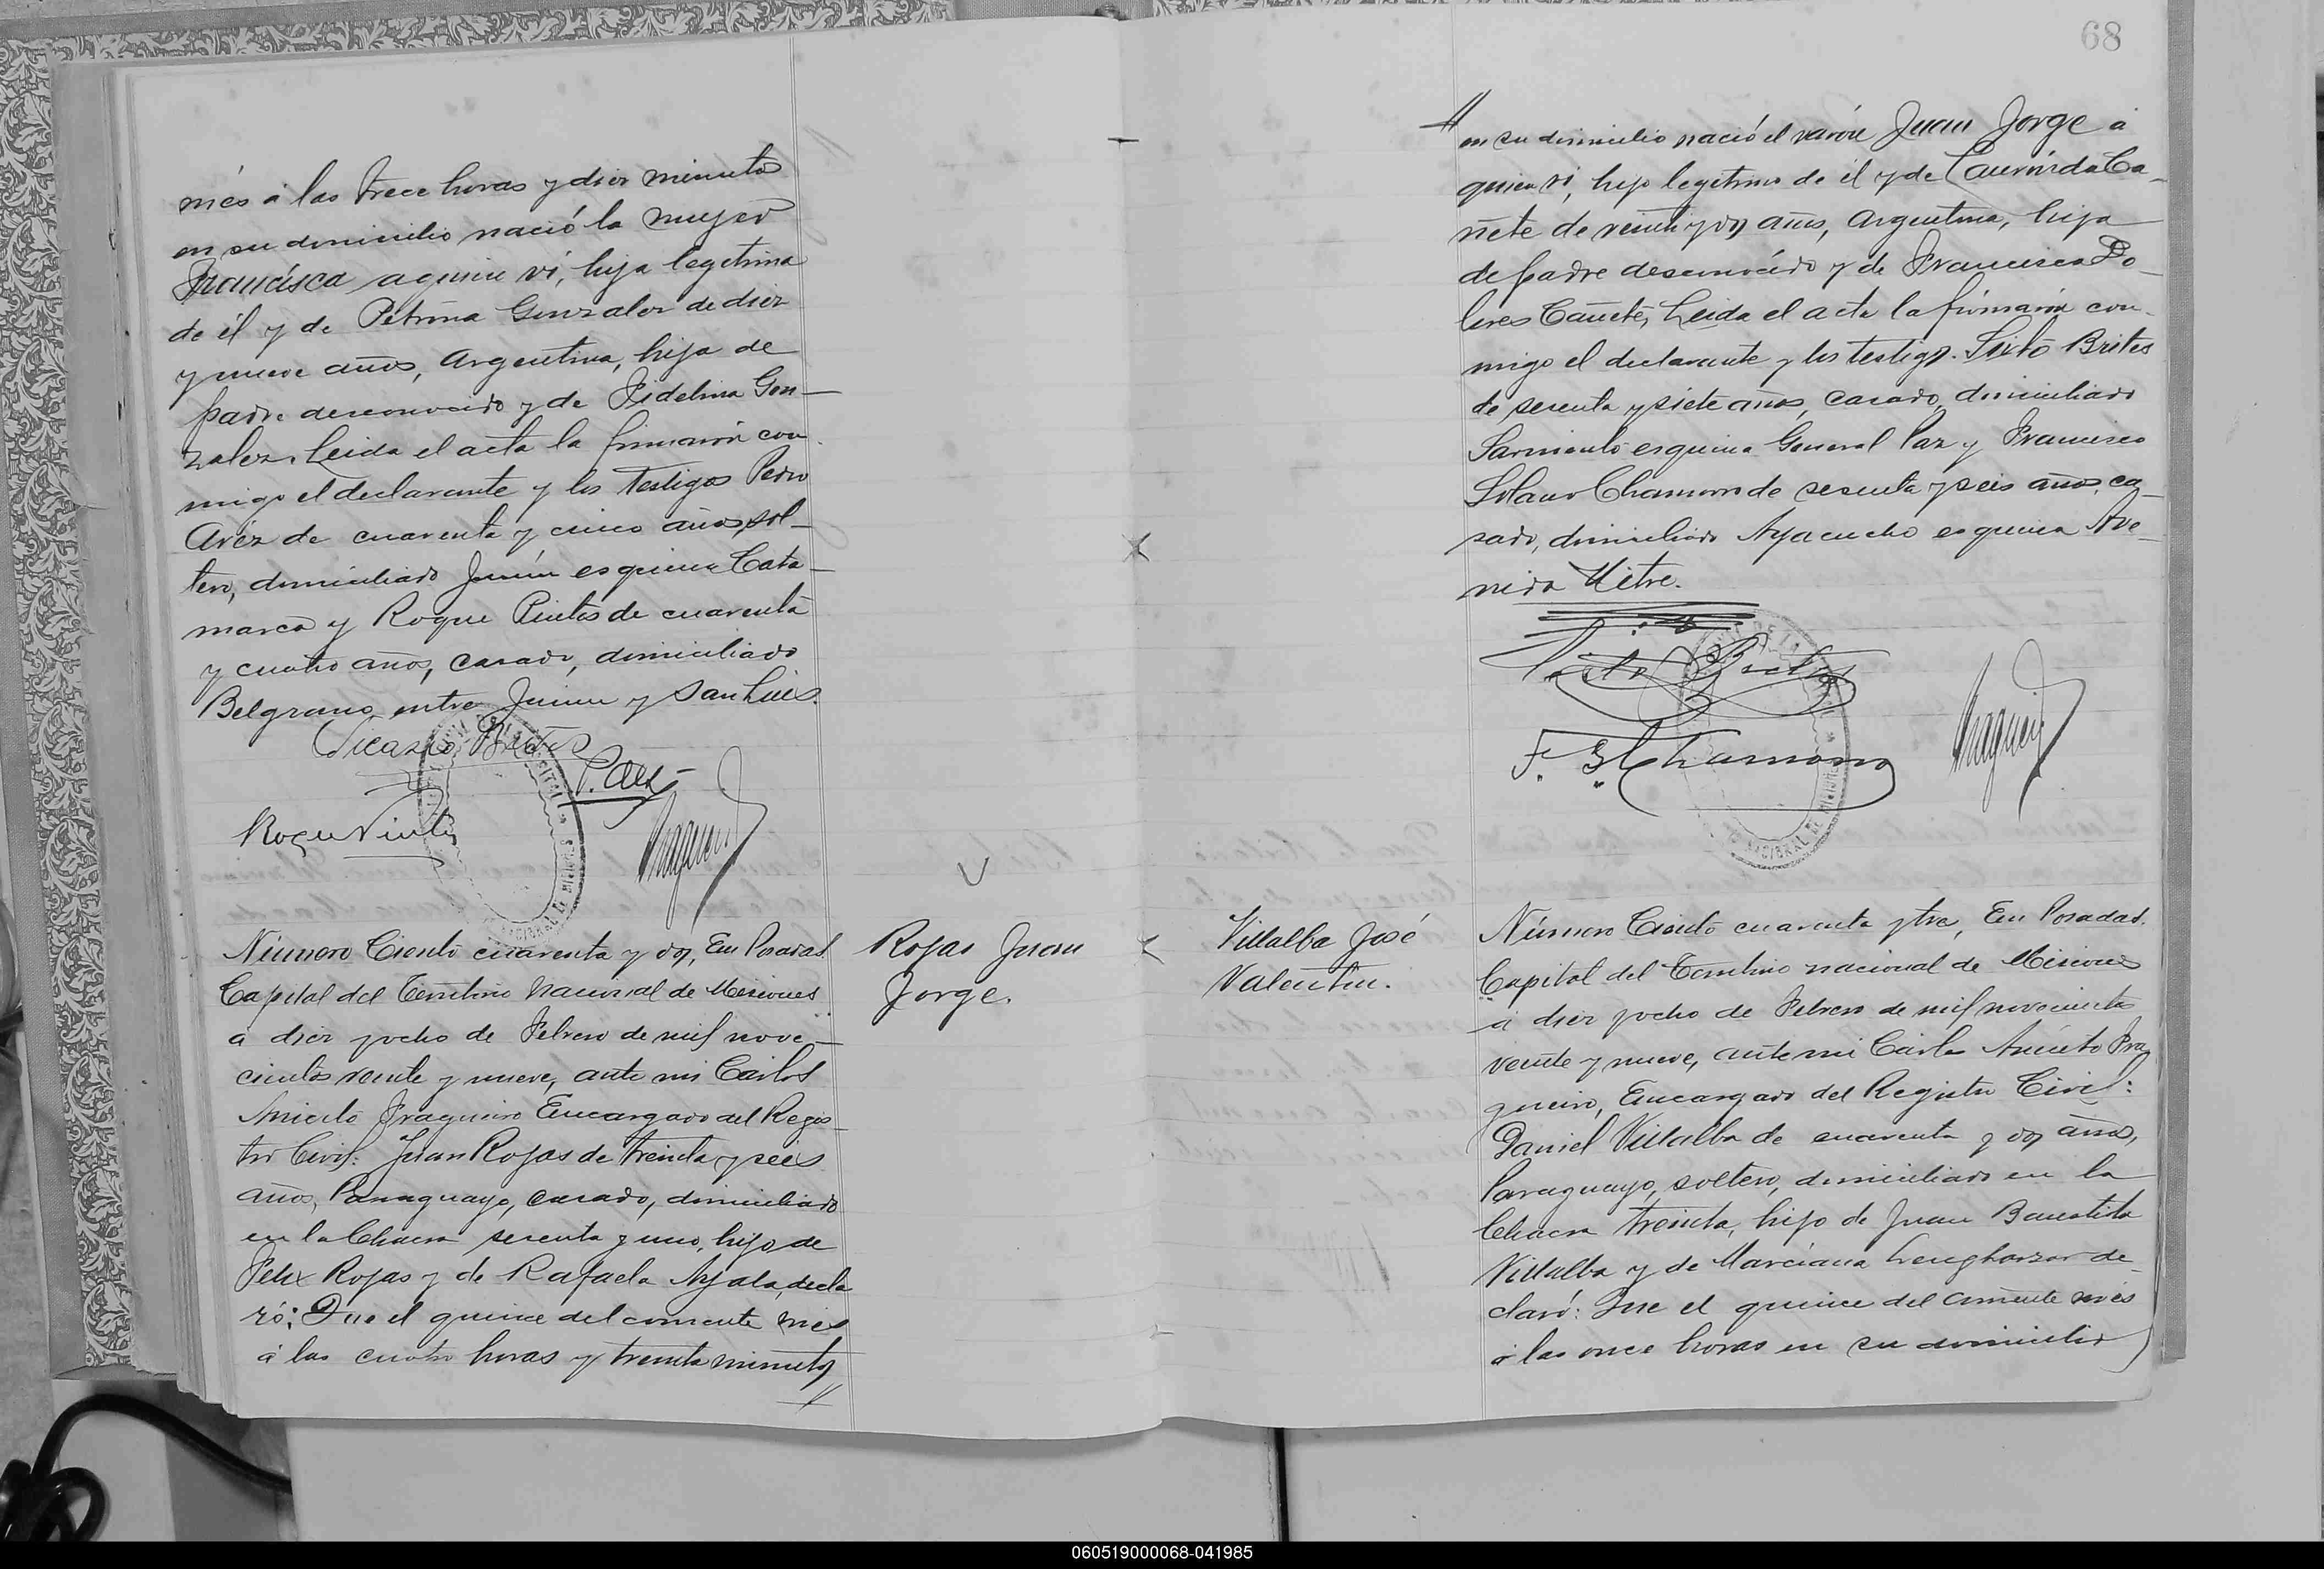 més á las trece horas y diez minutos
en su domicilio nació la mujer
Francisca a quien ví, hija legítima
de él y de Petrona Gonzalez de diez
y nueve años, Argentina, hija de
padre desconocido y de Fidelina Gon-
zalez. Leida el acta la firmaron con
migo el declarante y los testigos Pedro
Aréz de cuarenta y cinco años, sol-
tero, domiciliado Junín esquina Cata-
marca y Roque Pintos de cuarenta
y cuatro años, casado, domiciliado
Belgrano entre Junin y San Luis.
Roque Pintos
Número Ciento cuarenta y dos, En Posadas
Capital del Territorio Nacional de Misiones
á diez y ocho de Febrero de mil nove-
cientos veinte y nueve, ante mi Carlos
Aniceto Fragueiro Encargado del Regis-
tro Civil: Juan Rojas de treinta y seis
años, Paraguayo, casado, domiciliado
en la Chacra sesenta y uno, hijo de
Felix Rojas y de Rafaela Ayala, decla
ró: Que el quince del corriente mes
á las cuatro horas y treinta minutos
//
Rojas Juan
Jorge.
68
//
en su domicilio nació el varón Juan Jorge a
quien ví, hijo legítimo de él y de Ca-
ñete de veinte y dos años, Argentina, hija
de padre desconocido y de Francisca Do-
lores Cañete, Leida el acta la firmaron con-
migo el declarante y los testigos. Sixto Brites
de sesenta y siete años, casado, domiciliado
Sarmiento esquina General Paz y Francisco
Solano Chamorro de sesenta y seis años, ca-
sado, domiciliado Ayacucho esquina Ave-
nida Mitre.
F. S. Chamorro
Villalba José
Valentin.
Número Ciento cuarenta y tres, En Posadas.
Capital del Territorio nacional de Misiones
á diez y ocho de Febrero de mil novecientos
veinte y nueve, ante mi Carlos Aniceto Fra
gueiro, Encargado del Registro Civil:
Daniel Villalba de cuarenta y dos años,
Paraguayo, soltero, domiciliado en la
Chacra treinta, hijo de Juan Bautista
Villalba y de Marciana de-
claró: Que el quince del corriente més
á las once horas en su domicilio
060519000068-041985